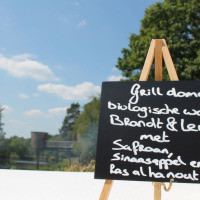 Grill dome
biologische wo
Brandt & le
met
Safraan,
Sinaasappel en
Ras al hanout